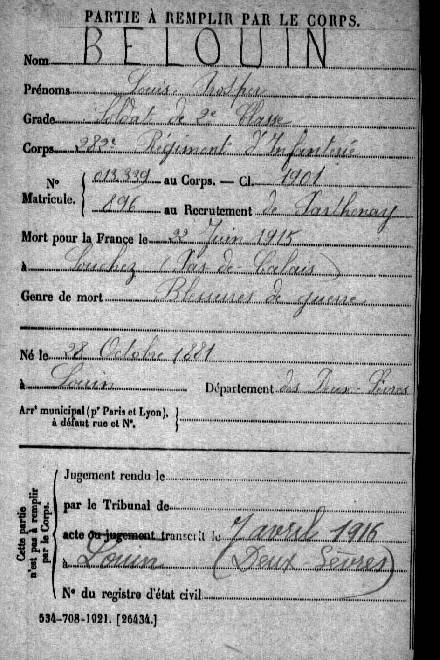 PARTIE À REMPLIR PAR LE CORPS.
Nom BELOUIN
Prénoms Louis Prosper
Grade Soldat de 2e Classe
Corps 282e Régiment d'Infanterie
N° Matricule. { 013.339 au Corps. — Cl. 1901
896 au Recrutement de Parthenay
Mort pour la France le 22 Juin 1915
à Souchez (Pas de Calais)
Genre de mort Blessures de guerre
Né le 28 Octobre 1881
à Louin Département des Deux-Sèvres
Arrt municipal (pr Paris et Lyon), à défaut rue et N°. }
Cette partie n'est pas à remplir par le Corps.
Jugement rendu le
par le Tribunal de
acte ou jugement transcrit le 7 avril 1916
à Louin (Deux Sèvres)
N° du registre d'état civil
534-708-1921. [26434.]